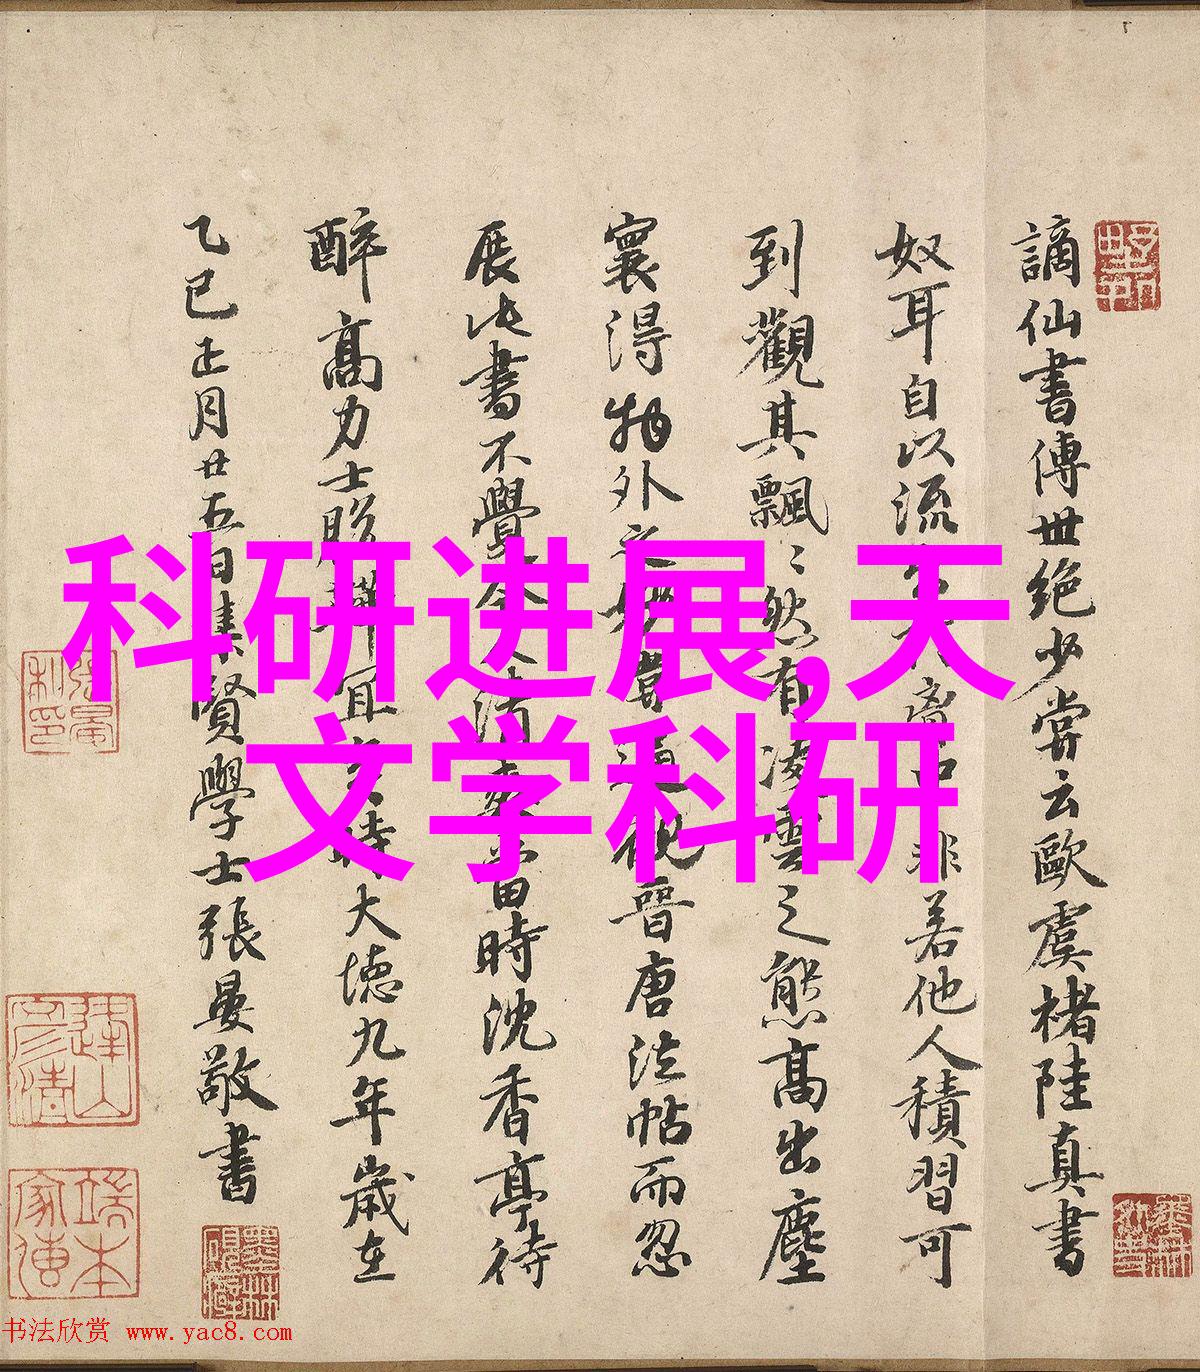 謫仙書傳世絶少嘗云歐虞褚陸真書
奴耳自以流非若他人積習可
到觀其飄〻然有凌雲之態高出塵
寰得物外之妙嘗遍觀晉唐法帖而忽
展此書不覺令人清爽當時沈香亭待
醉高力士脱鞾宜之時大德九年歲在
乙巳正月廿五日集賢學士張晏敬書
科研进展,天
文学科研
书法欣赏 www.yac8.com